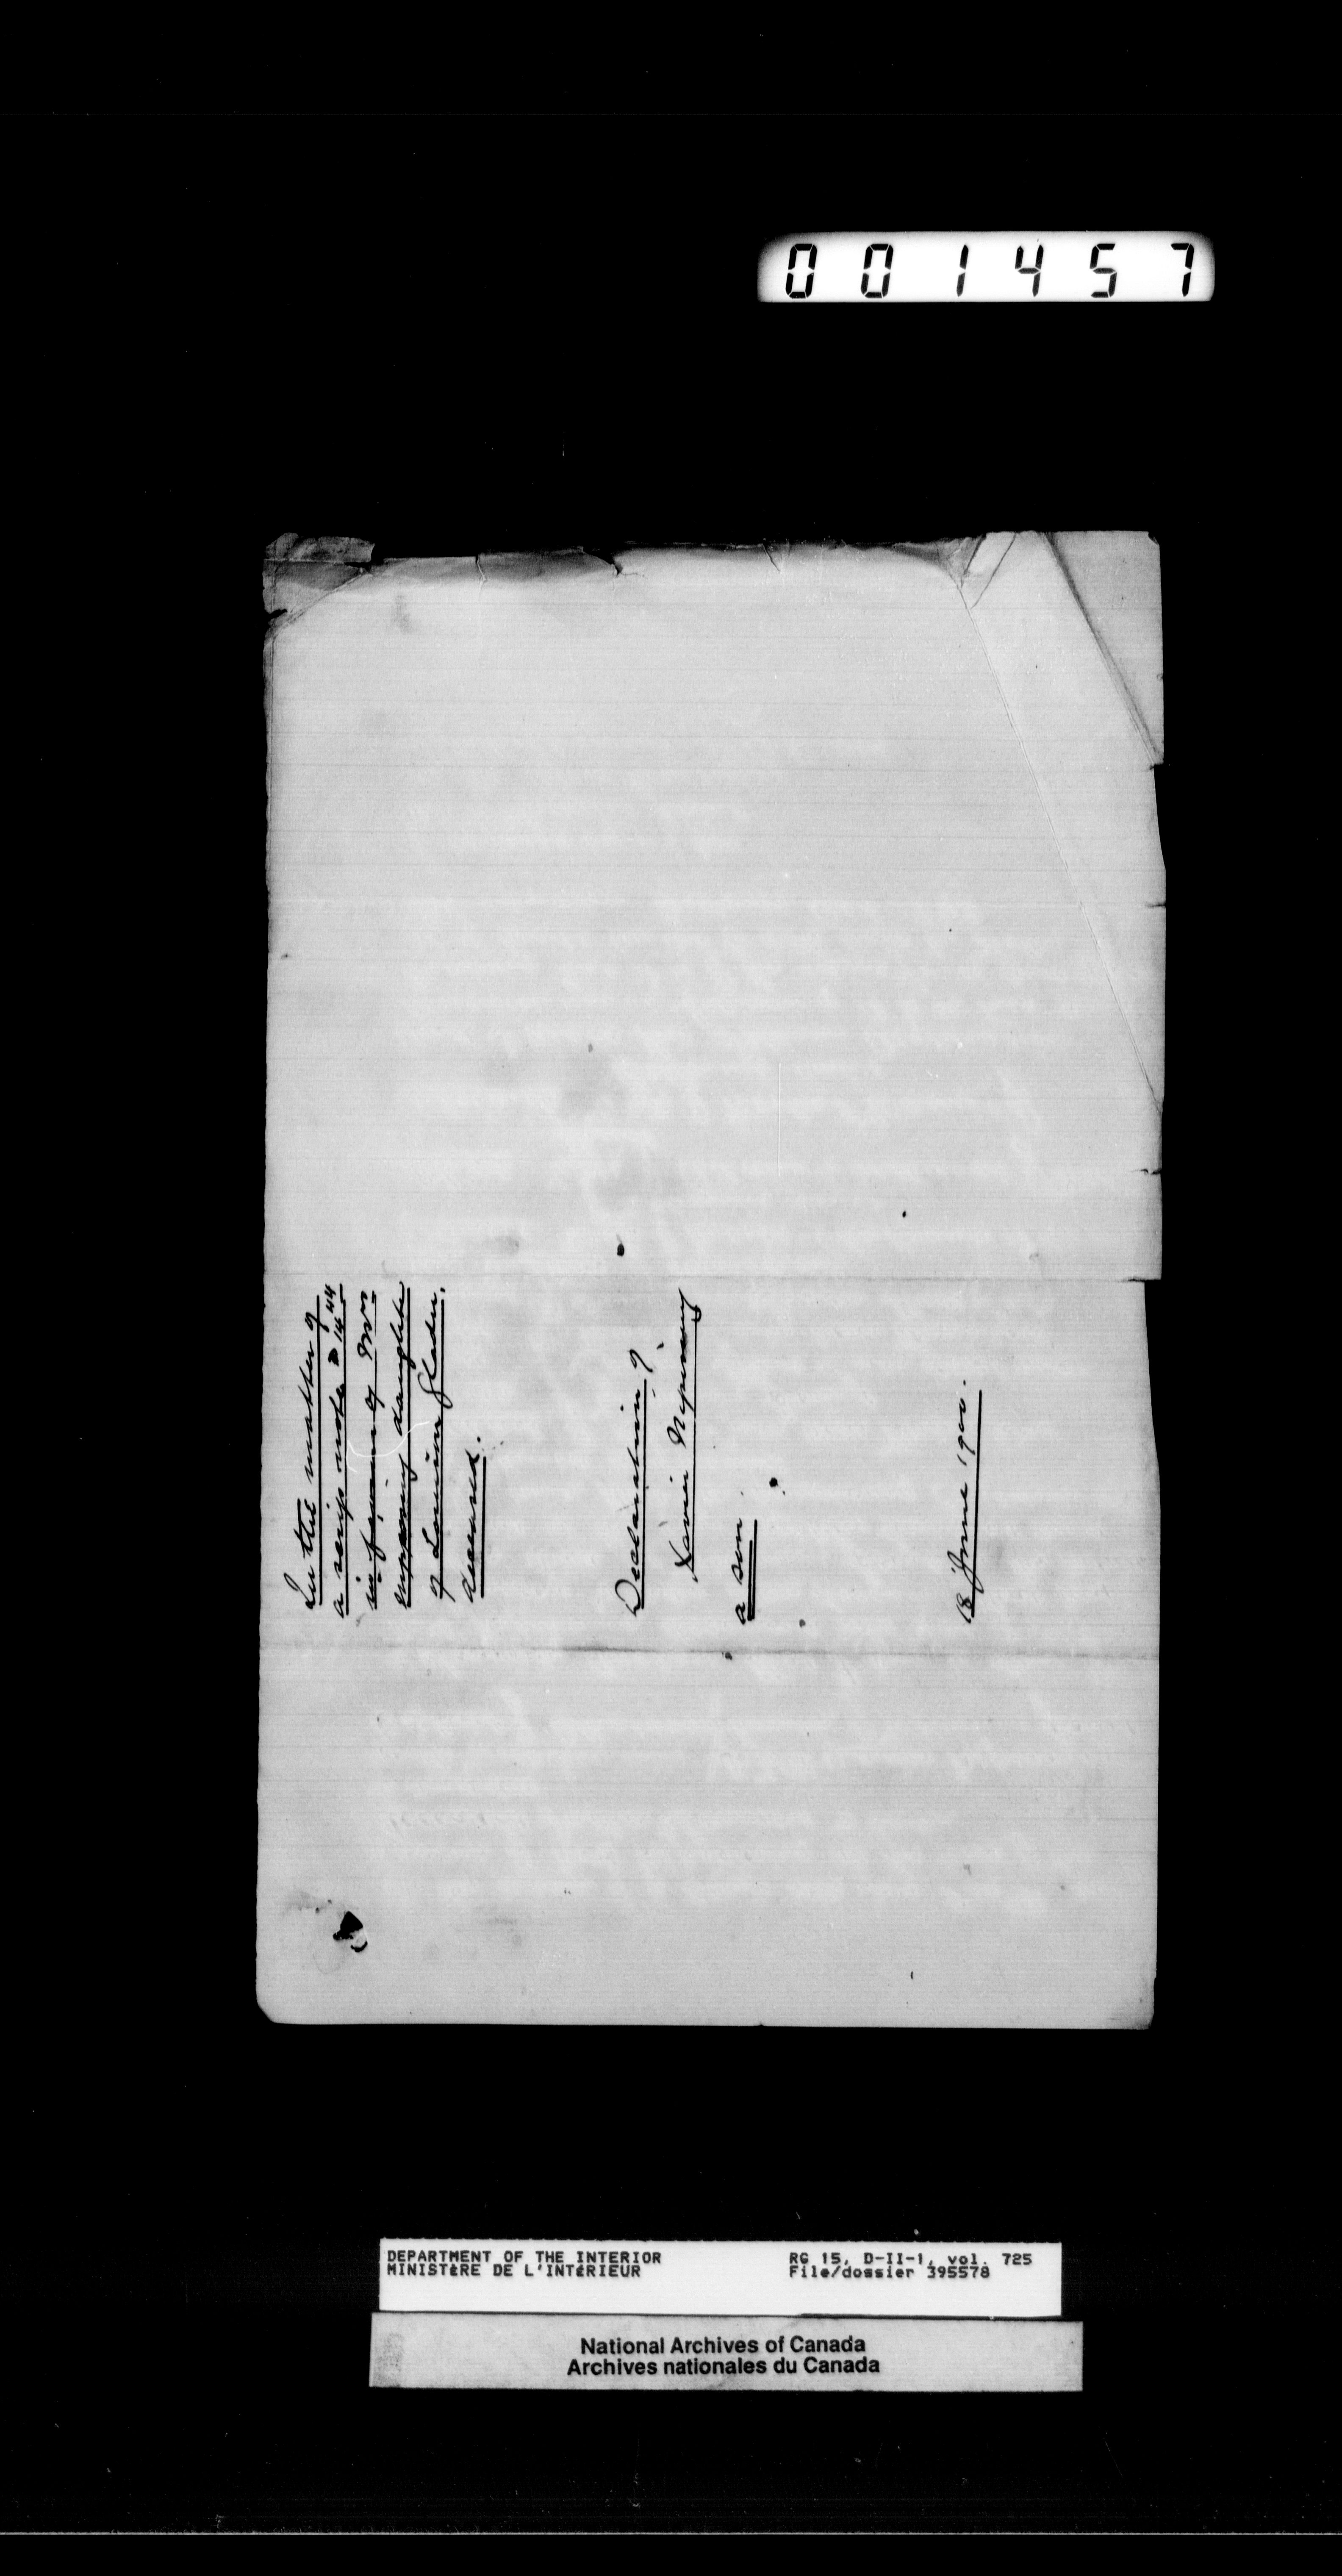 001457
In the matter of
a scrip note D 1444
in favour of Mrs
Nipissing daughter
of Louison Gladu,
deceased.
Declaration of
Xavier Nipissing
a son
18 June 1900.
DEPARTMENT OF THE INTERIOR
MINISTÈRE DE L'INTÉRIEUR
RG 15, D-II-1, vol. 725
File/dossier 395578
National Archives of Canada
Archives nationales du Canada